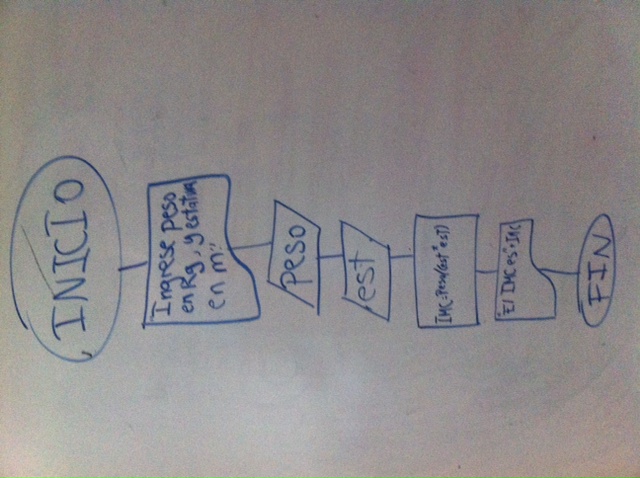 INICIO
"Ingrese peso
en Kg, y estatura
en m:"
peso
est
IMC=Peso/(est*est)
"El IMC es"+IMC
FIN